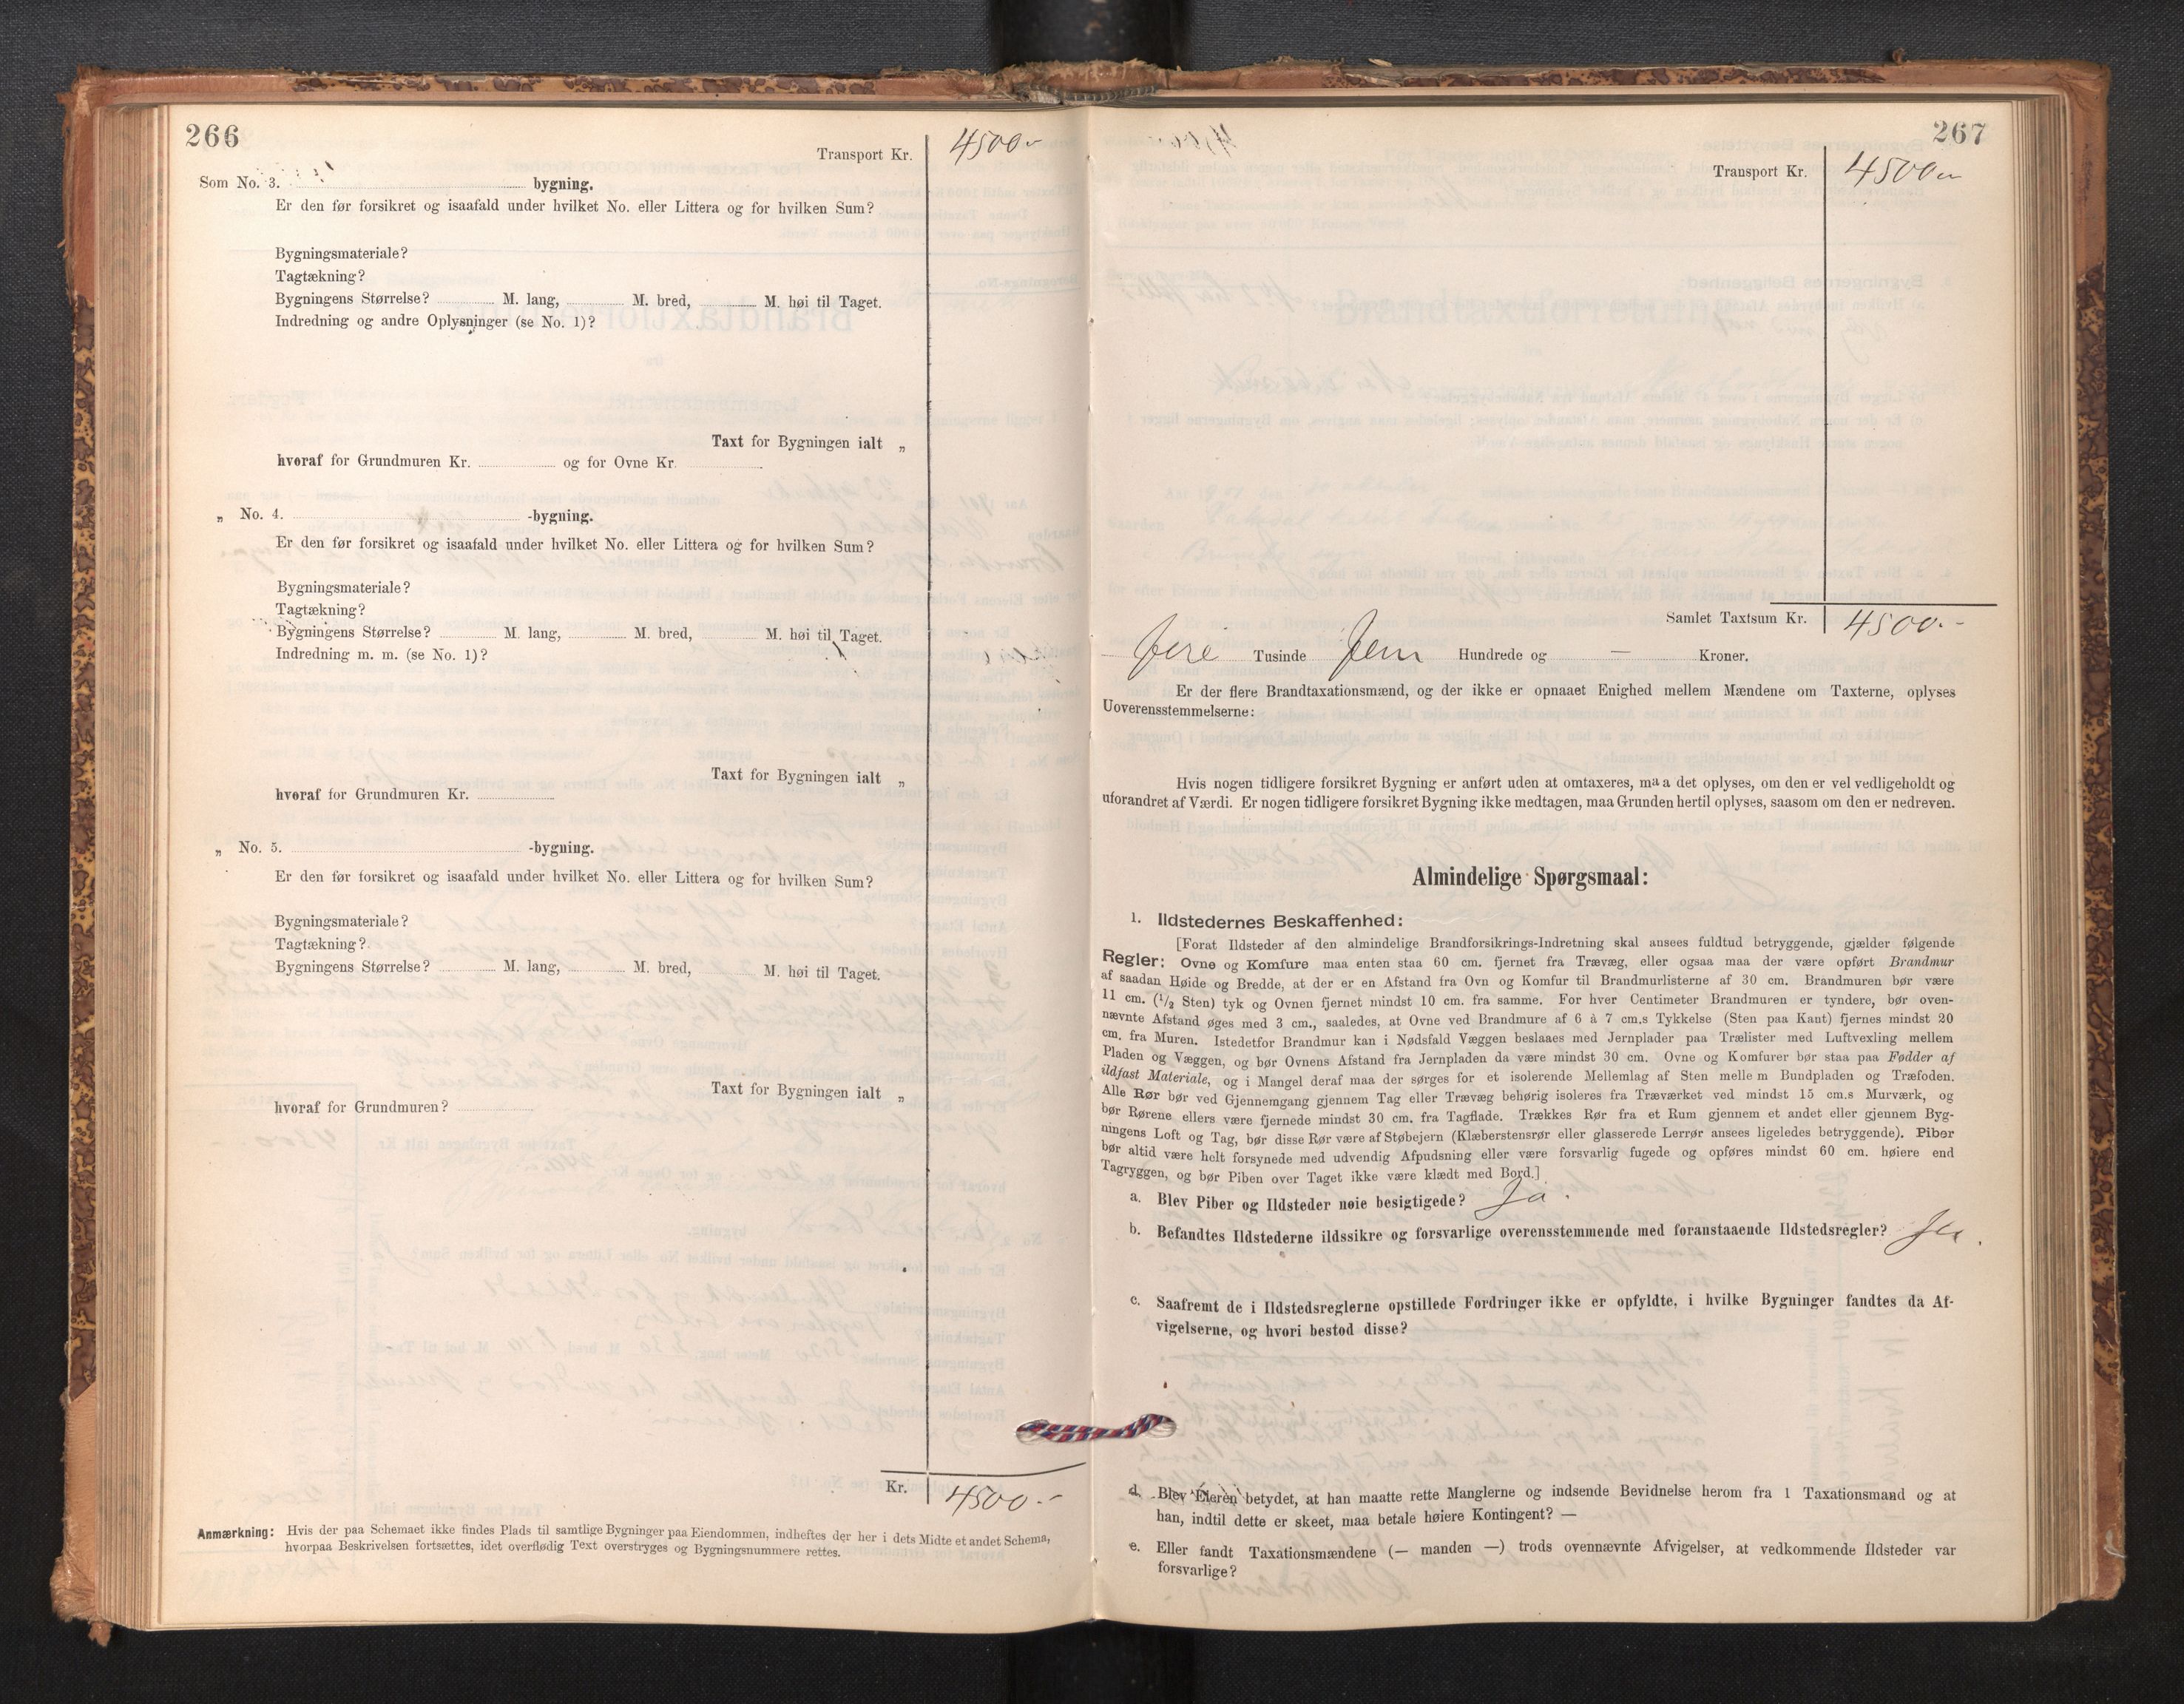 266
Transport Kr. 4500 –
Som No. 3. bygning.
Er den før forsikret og isaafald under hvilket No. eller Littera og for hvilken Sum?
Bygningsmateriale?
Tagtækning?
Bygningens Størrelse? M. lang, M. bred, M. høi til Taget.
Indredning og andre Oplysninger (se No. 1)?
Taxt for Bygningen ialt „
hvoraf for Grundmuren Kr. og for Ovne Kr.
„ No. 4. -bygning.
Er den før forsikret og isaafald under hvilket No. eller Littera og for hvilken Sum?
Bygningsmateriale?
Tagtækning?
Bygningens Størrelse? M. lang, M. bred, M. høi til Taget.
Indredning m. m. (se No. 1)?
Taxt for Bygningen ialt „
hvoraf for Grundmuren Kr.
„ No. 5. -bygning.
Er den før forsikret og isaafald under hvilket No. eller Littera og for hvilken Sum?
Bygningsmateriale?
Tagtækning?
Bygningens Størrelse? M. lang, M. bred, M. høi til Taget.
Taxt for Bygningen ialt „
hvoraf for Grundmuren?
Kr. 4500.–
Anmærkning: Hvis der paa Schemaet ikke findes Plads til samtlige Bygninger paa Eiendommen, indheftes der her i dets Midte et andet Schema,
hvorpaa Beskrivelsen fortsættes, idet overflødig Text overstryges og Bygningsnummere rettes.
267
Transport Kr. 4500
Samlet Taxtsum Kr. 4500.–
Fire Tusinde Fem Hundrede og — Kroner.
Er der flere Brandtaxationsmænd, og der ikke er opnaaet Enighed mellem Mændene om Taxterne, oplyses
Uoverensstemmelserne:
Hvis nogen tidligere forsikret Bygning er anført uden at omtaxeres, maa det oplyses, om den er vel vedligeholdt og
uforandret af Værdi. Er nogen tidligere forsikret Bygning ikke medtagen, maa Grunden hertil oplyses, saasom om den er nedreven.
Almindelige Spørgsmaal:
1. Ildstedernes Beskaffenhed:
[Forat Ildsteder af den almindelige Brandforsikrings-Indretning skal ansees fuldtud betryggende, gjælder følgende
Regler: Ovne og Komfure maa enten staa 60 cm. fjernet fra Trævæg, eller ogsaa maa der være opført Brandmur
af saadan Høide og Bredde, at der er en Afstand fra Ovn og Komfur til Brandmurlisterne af 30 cm. Brandmuren bør være
11 cm. (1/2 Sten) tyk og Ovnen fjernet mindst 10 cm. fra samme. For hver Centimeter Brandmuren er tyndere, bør oven-
nævnte Afstand øges med 3 cm., saaledes, at Ovne ved Brandmure af 6 à 7 cm.s Tykkelse (Sten paa Kant) fjernes mindst 20
cm. fra Muren. Istedetfor Brandmur kan i Nødsfald Væggen beslaaes med Jernplader paa Trælister med Luftvexling mellem
Pladen og Væggen, og bør Ovnens Afstand fra Jernpladen da være mindst 30 cm. Ovne og Komfurer bør staa paa Fødder af
ildfast Materiale, og i Mangel deraf maa der sørges for et isolerende Mellemlag af Sten mellem Bundpladen og Træfoden.
Alle Rør bør ved Gjennemgang gjennem Tag eller Trævæg behørig isoleres fra Træværket ved mindst 15 cm.s Murværk, og
bør Rørene ellers være fjernede mindst 30 cm. fra Tagflade. Trækkes Rør fra et Rum gjennem et andet eller gjennem Byg-
ningens Loft og Tag, bør disse Rør være af Støbejern (Klæberstensrør eller glasserede Lerrør ansees ligeledes betryggende). Piber
bør altid være helt forsynede med udvendig Afpudsning eller være forsvarlig fugede og opføres mindst 60 cm. høiere end
Tagryggen, og bør Piben over Taget ikke være klædt med Bord.]
a. Blev Piber og Ildsteder nøie besigtigede? Ja.
b. Befandtes Ildstederne ildssikre og forsvarlige overensstemmende med foranstaaende Ildstedsregler? Ja.
c. Saafremt de i Ildstedsreglerne opstillede Fordringer ikke er opfyldte, i hvilke Bygninger fandtes da Af-
vigelserne, og hvori bestod disse?
d. Blev Eieren betydet, at han maatte rette Manglerne og indsende Bevidnelse herom fra 1 Taxationsmand og at
han, indtil dette er skeet, maa betale høiere Kontingent? —
e. Eller fandt Taxationsmændene (— manden —) trods ovennævnte Afvigelser, at vedkommende Ildsteder var
forsvarlige?